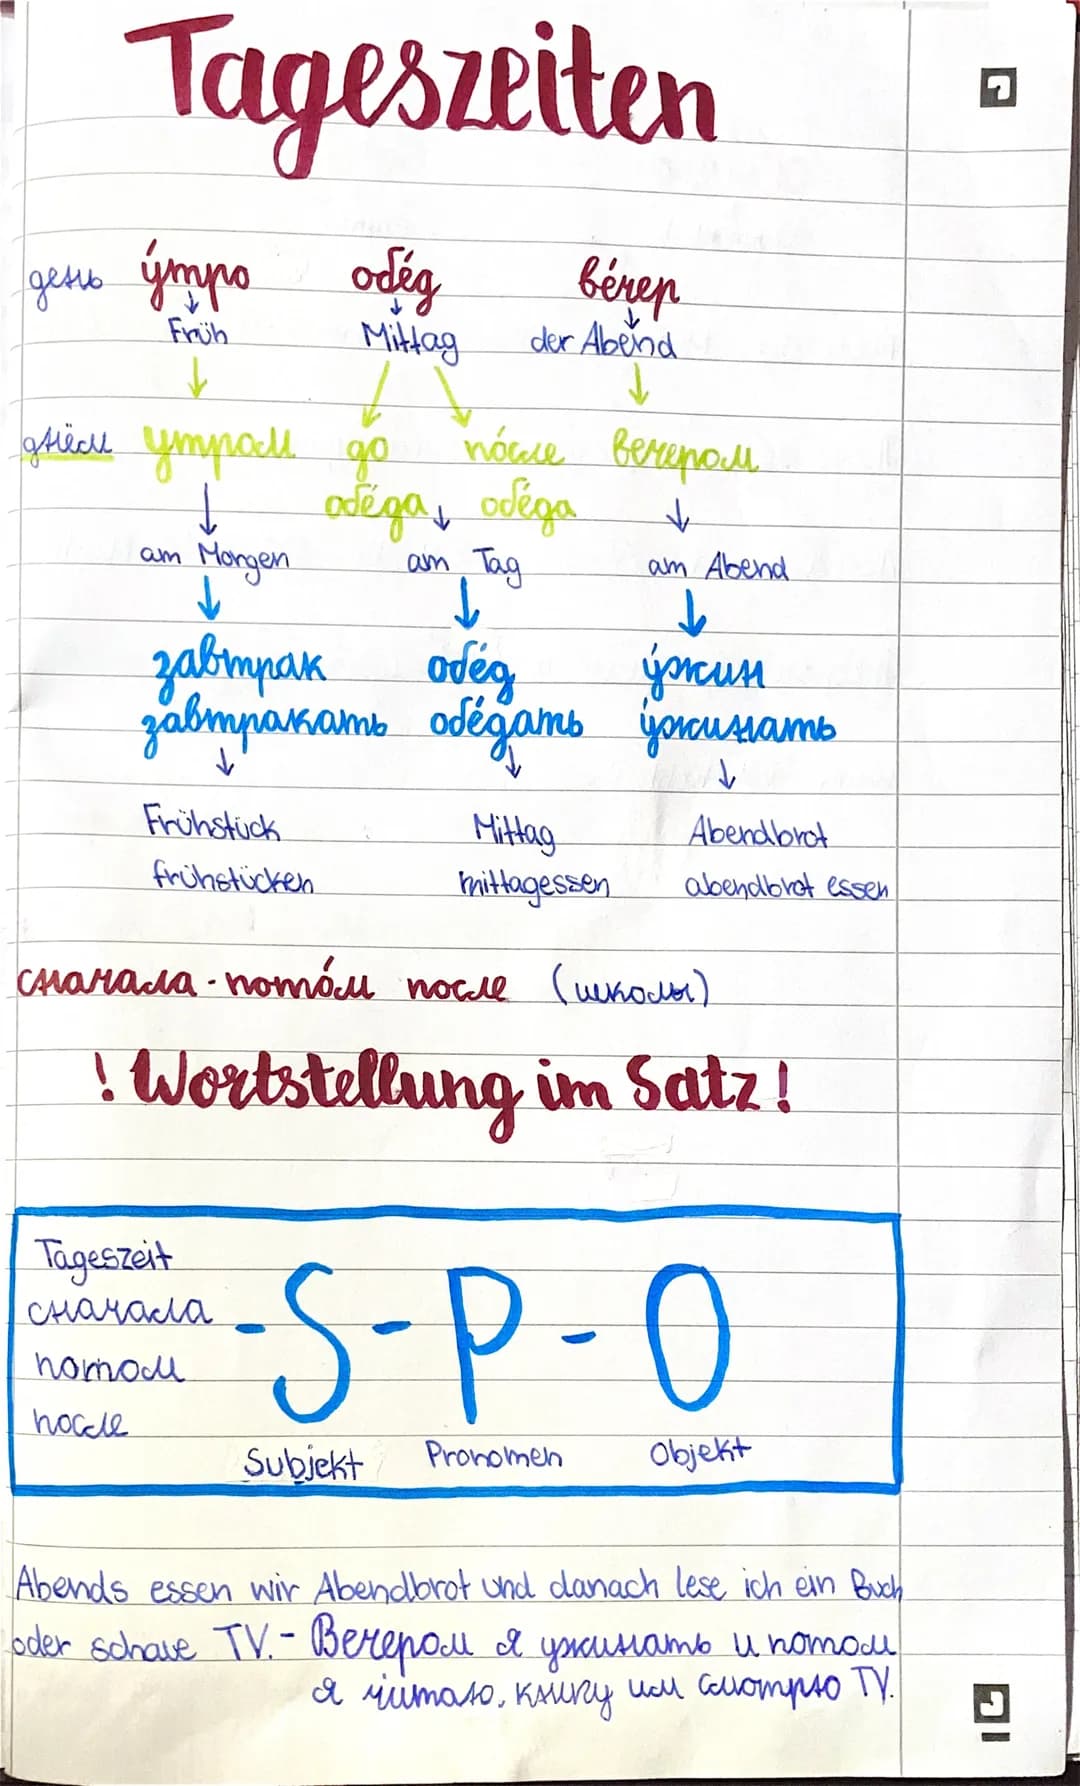 Tageszeiten
день у́тро обе́д ве́чер
Früh Mittag der Abend
днём утром до по́сле вечером
обе́да обе́да
am Morgen am Tag am Abend
завтрак обе́д у́жин
завтракать обе́дать у́жинать
Frühstück Mittag Abendbrot
frühstücken mittagessen abendbrot essen
сначала - пото́м после (школы)
! Wortstellung im Satz !
Tageszeit
сначала - S - P - O
потом
после
Subjekt Pronomen Objekt
Abends essen wir Abendbrot und danach lese ich ein Buch
oder schaue TV. - Вечером я ужинать и потом
я читаю, книгу или смотрю TV.